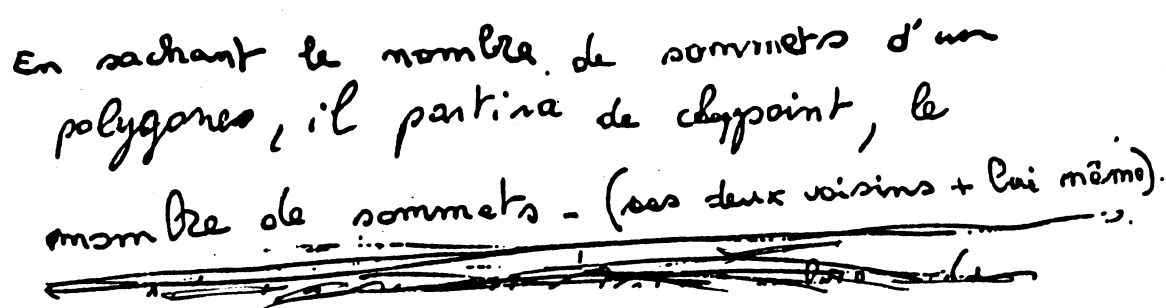 En sachant le nombre de sommets d'un
polygones, il partira de chq point, le
nombre de sommets - (ses deux voisins + lui même).